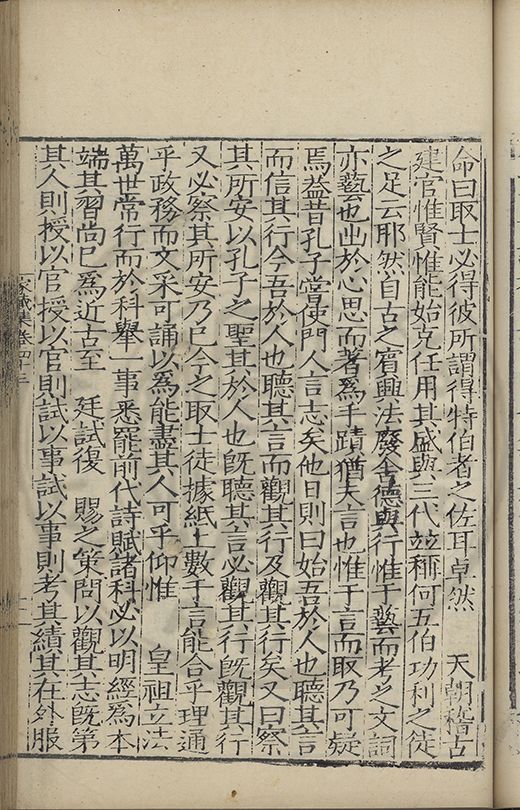 命曰取士必得彼所謂得特伯者之佐耳卓然　天朝稽古
建官惟賢惟能始克任用其盛與三代竝稱何五伯功利之徒
之足云耶然自古之賓興法廢舍德與行惟于藝而考之文詞
亦藝也出於心思而著爲手蹟猶夫言也惟于言而取乃可疑
焉益昔孔子嘗使門人言志矣他日則曰始吾於人也聽其言
而信其行今吾於人也聽其言而觀其行及觀其行矣又曰察
其所安以孔子之聖其於人也旣聽其言必觀其行旣觀其行
又必察其所安乃已今之取士徒據紙上數千言能合乎理通
乎政務而文采可誦以爲能盡其人可乎仰惟　皇祖立法
萬世常行而於科舉一事悉罷前代詩賦諸科必以明經爲本
端其習尚已爲近古至　廷試復　賜之策問以觀其志旣第
其人則授以官授以官則試以事試以事則考其績其在外服
家藏集卷四十三